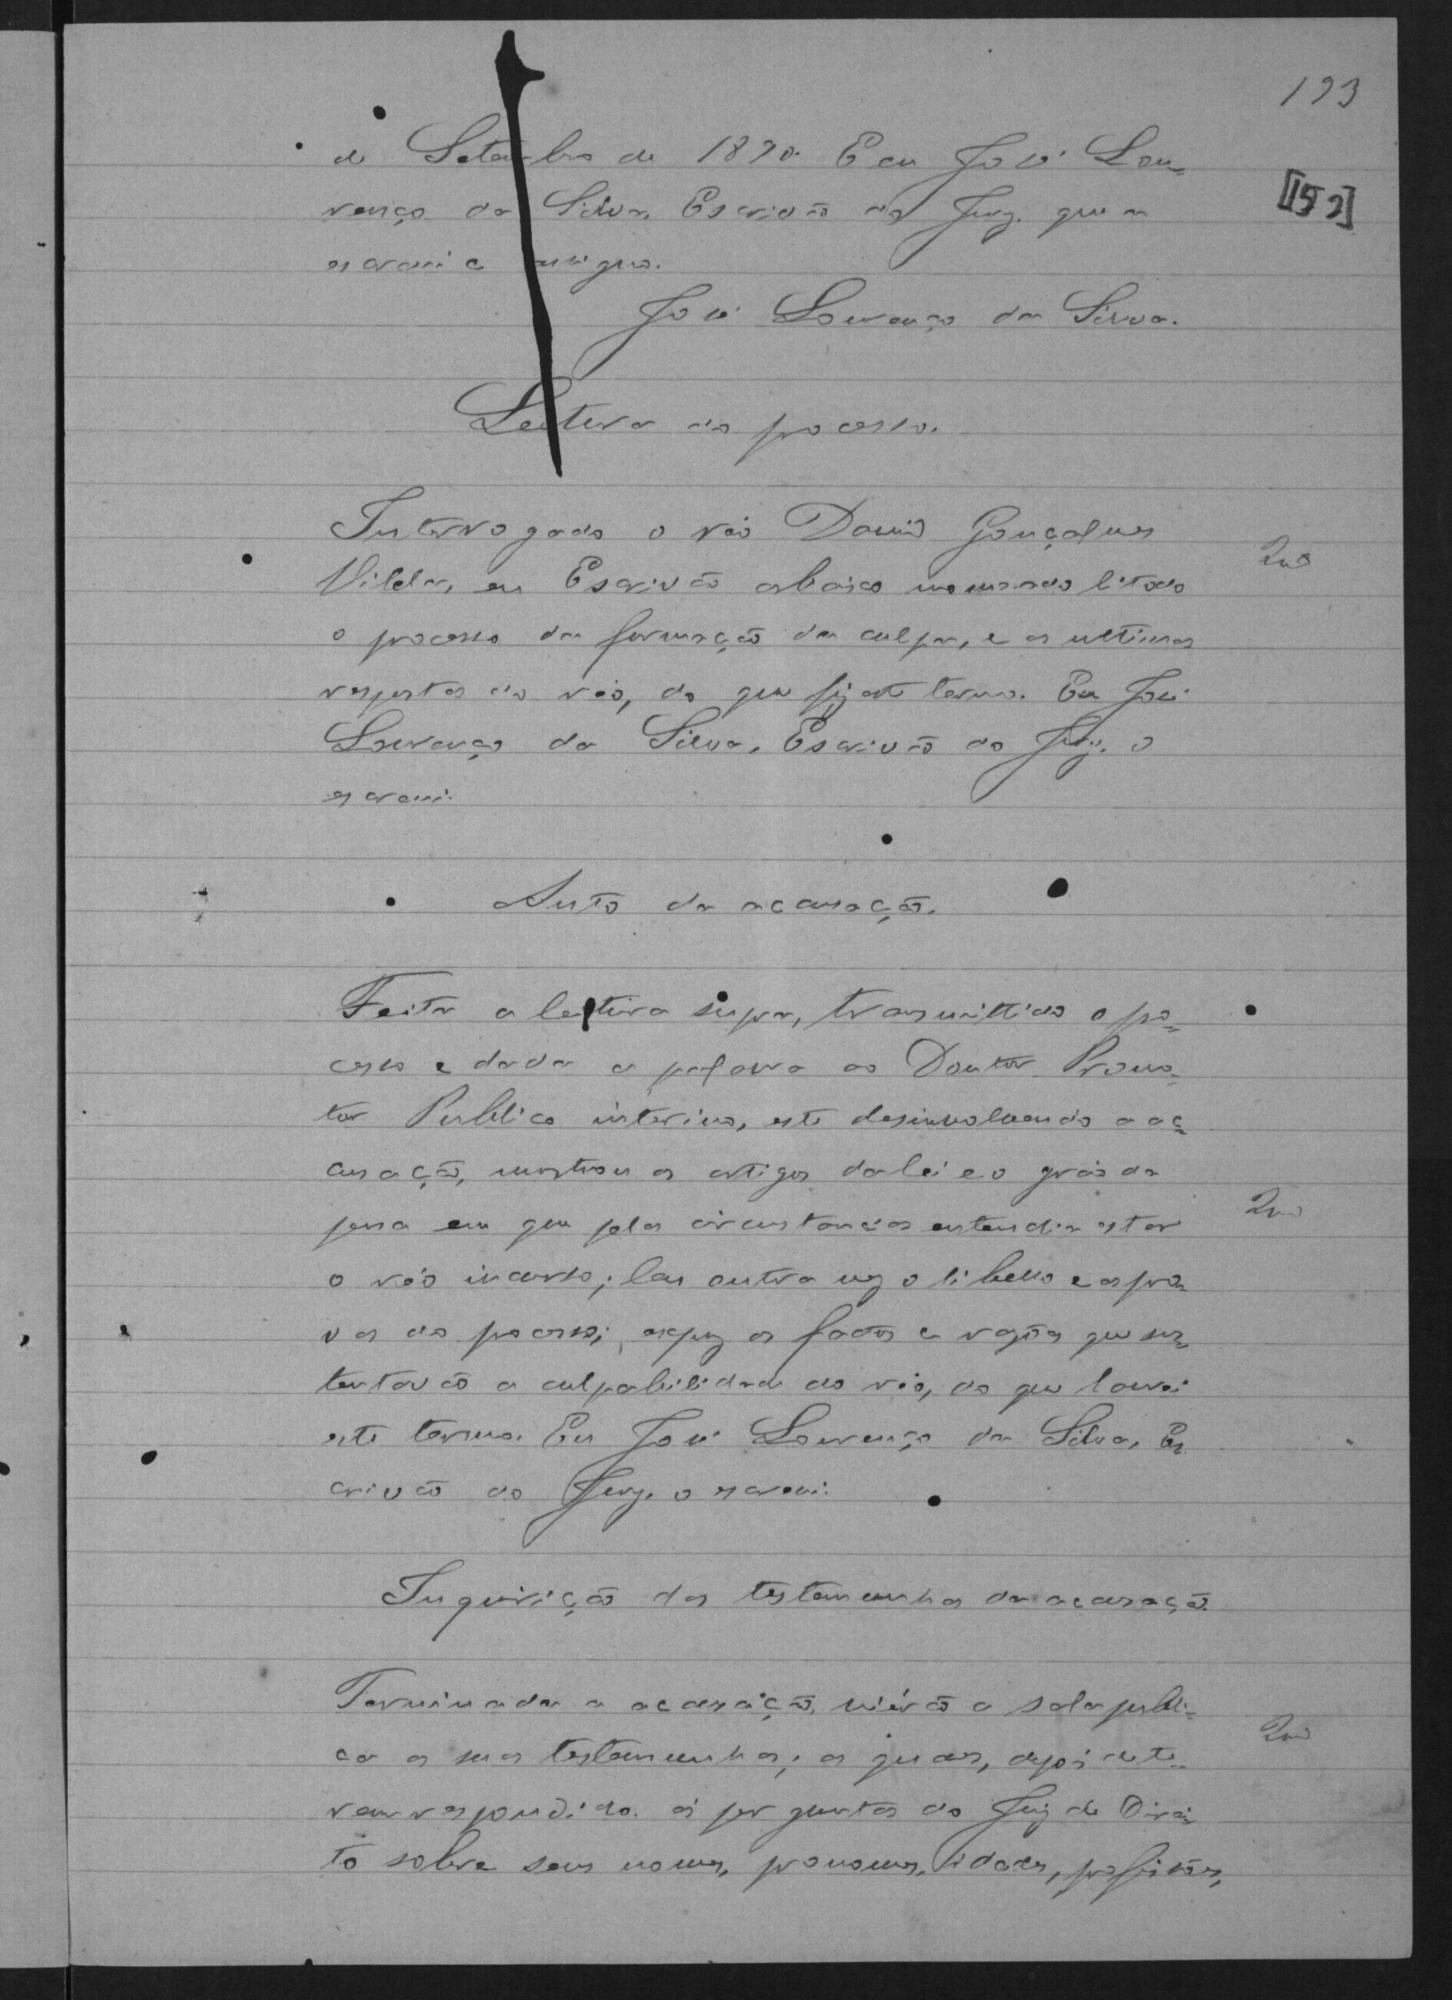 193
[152]
de Setembro de 1890. E eu José Lou-
renço da Silva, Escrivão do Jury. que a
escrevi e assigno.
José Lourenço da Silva.
Leitura do processo.
Interrogado o réo David Gonçalves
Villela, eu Escrivão abaixo nomeado li todo
o processo da formação da culpa, e as ultimas
respostas do réo, do que fiz este termo. Eu José
Lourenço da Silva, Escrivão do Jury. o
escrevi.
Auto da accusação.
Feita a leitura supra, transmittido o pro-
cesso e dada a palavra ao Doutor Promo-
tor Publico interino, este desinvolvendo a ac-
cusação, mostrou os artigos da lei e o gráo da
pena em que pelas circunstancias entendia estar
o réo incurso; leu outra vez o libello e as pro-
vas do processo; expoz os factos e rasões que sus-
tentavão a culpabilidade do réo, do que lavrei
este termo. Eu José Lourenço da Silva, Es
crivão do Jury. o escrevi.
Inquirição das testemunhas da accusação
Terminada a accusação, viérão a sala publi-
ca as suas testemunhas; as quaes, depois de te-
rem respondido ás perguntas do Juiz de Direi-
to sobre seus nomes, pronomes, idades, profissões,